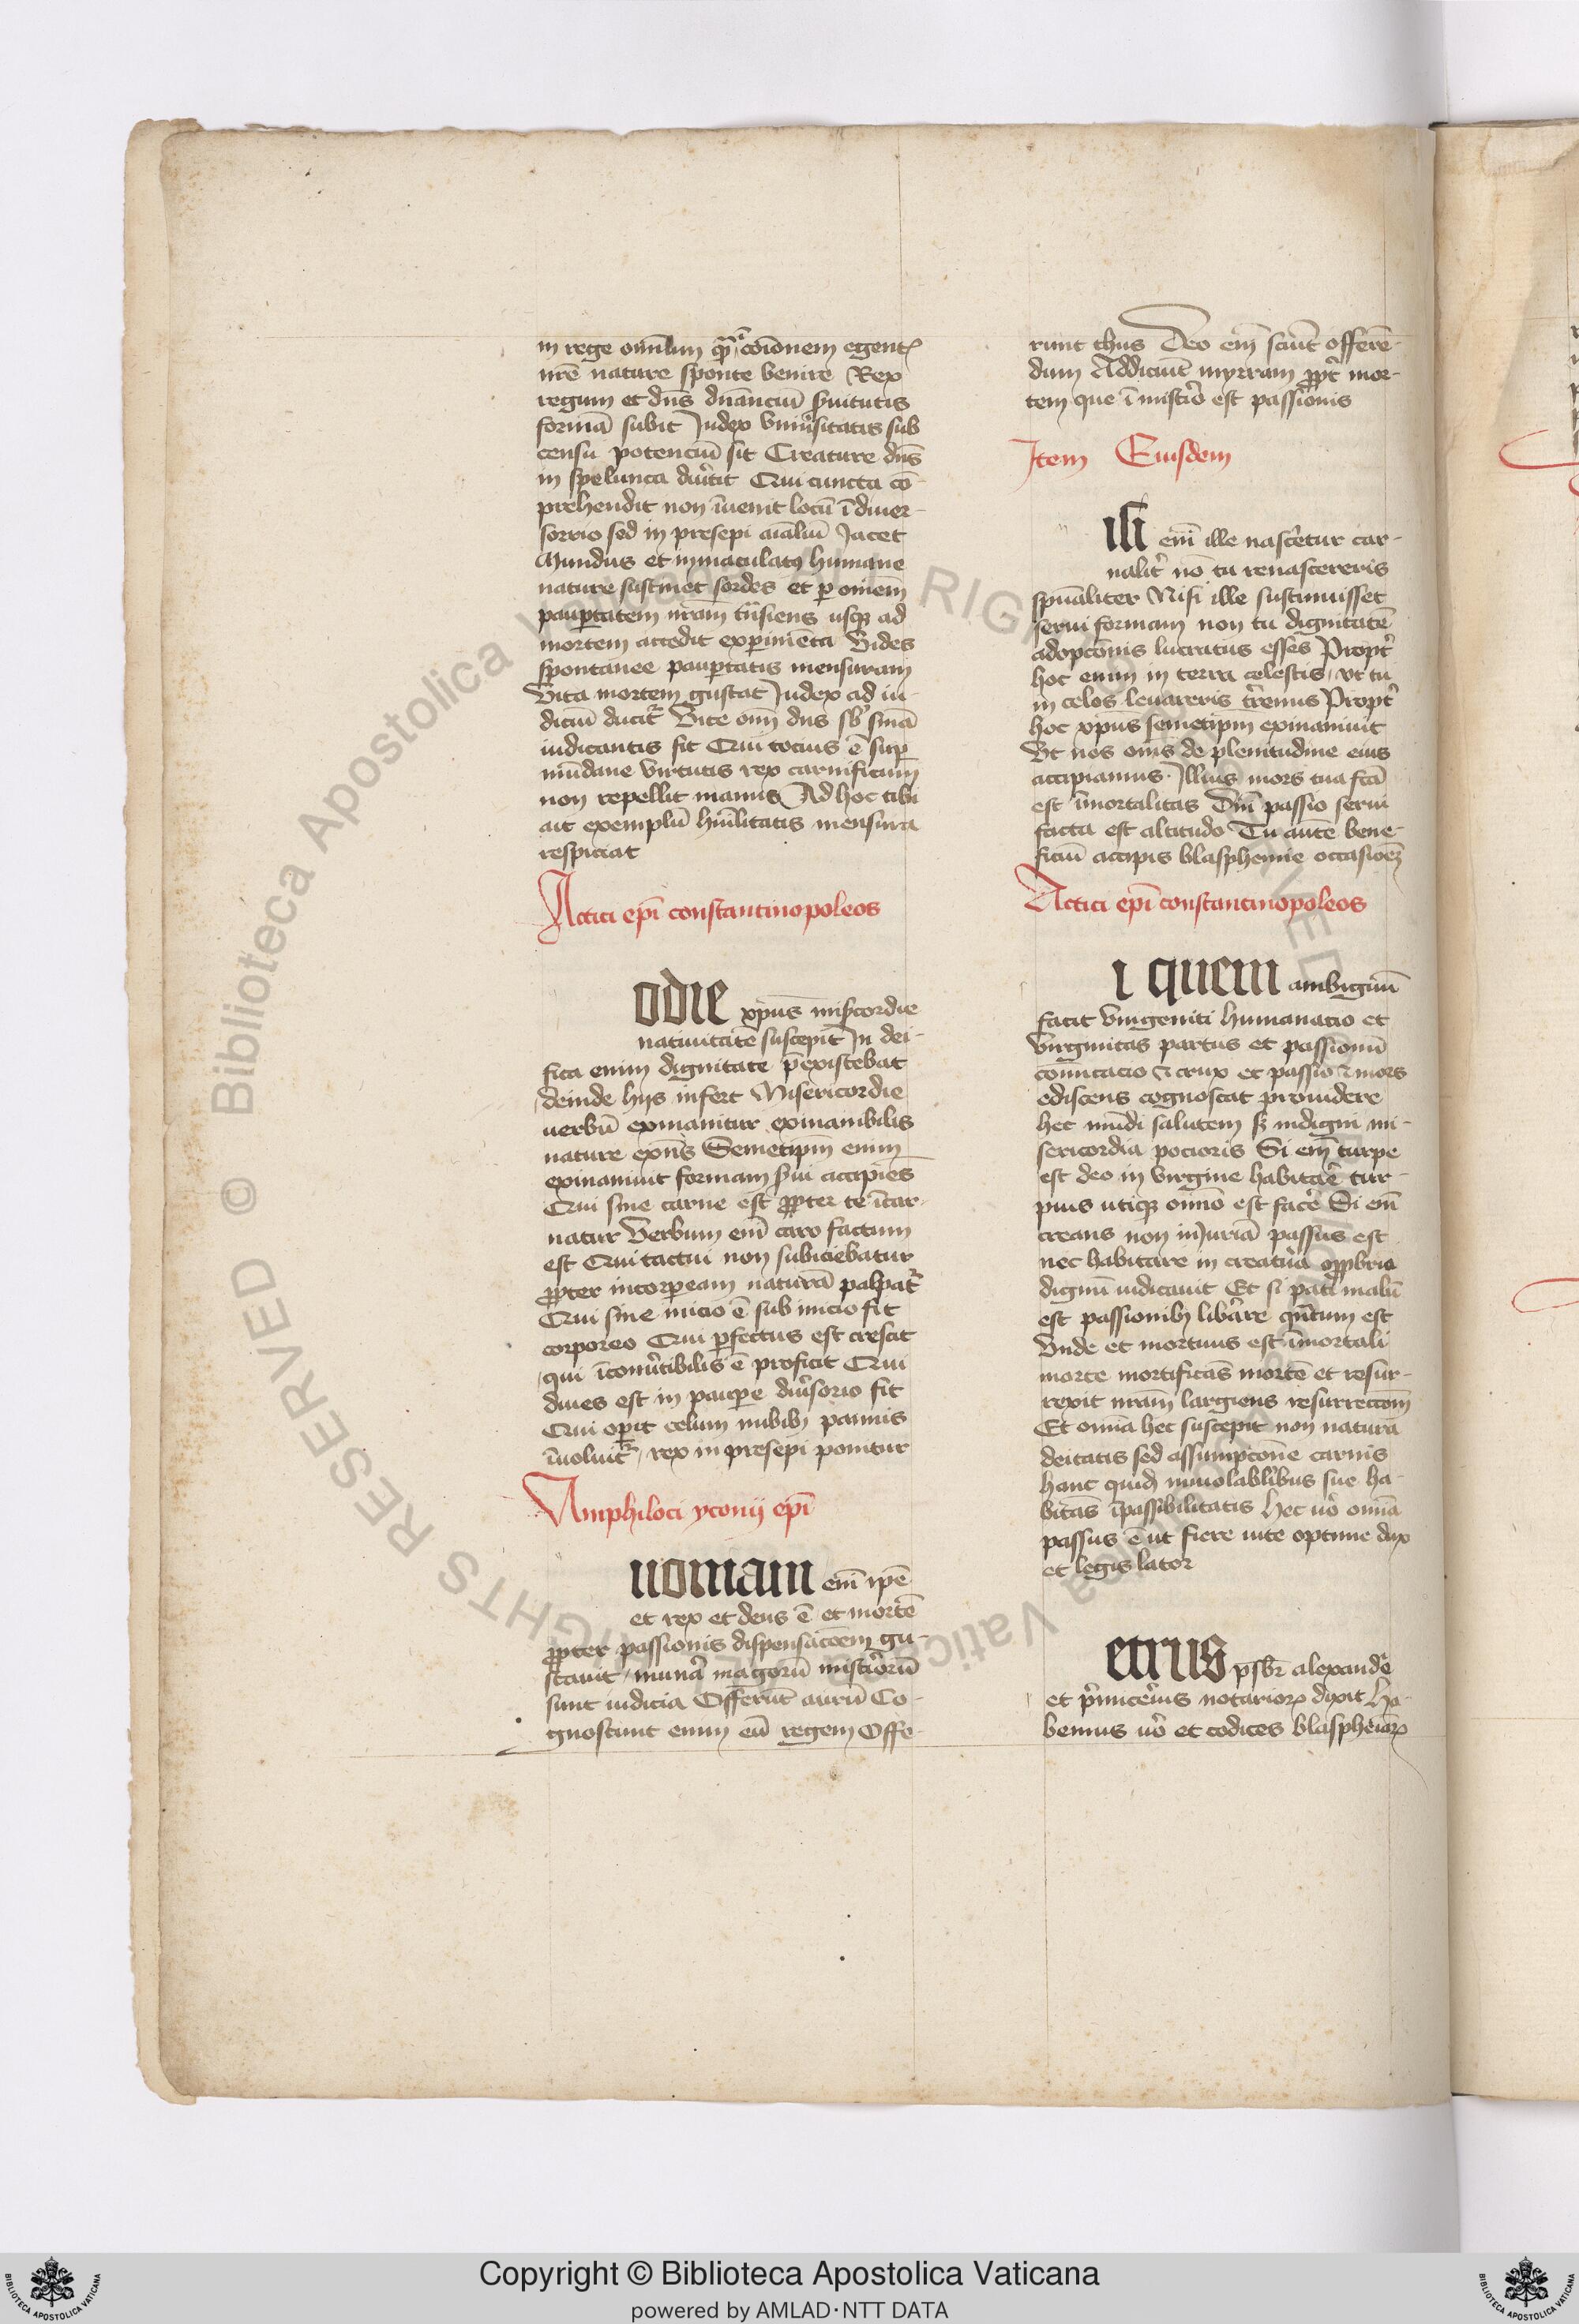 in rege omniū quā ꝯcōionem egent
nrē nature sponte venire Rex
regum et dn̄s dn̄anciū s̄uitutis
formā subit Iudex vniūsitatis sub
censu potenciū sit Creature dn̄s
in spelunca diūtit Qui cuncta cō-
prehendit non īuenit locū ī diuer-
sorrio sed in presepi aīaliū Jacet
Mundus et inmaculatꝯ humane
nature sustinet sordes et ꝑ omēm
pauꝑtatem nr̄am tn̄siens usqꝫ ad
mortem accedit exꝑimēta Vides
spontanee pauꝑtatis mensuram
Vita mortem gustat Iudex ad iu-
diciū ducit᷑ Vite om̄ dn̄s sb̓ sn̄iā
iudicantis fit Qui tocius ē suꝑ
mūdane virtutis rex carnificum
non repellit manus Ad hoc tibi
ait exemplū hūilitatis mensura
respiciat
Actici ep̄i constantinopoleos
odie xp̄us mis̄icordie
natiuitatē suscepit In dei-
fica enim dignitate p̄existebat
deinde hijs infert Misericordie
uerbū exinanitur exinanibilis
nature exn̄s Semetip̄m enim
exinaniuit formam s̄ui accipiēs
Qui sine carne est ꝓpter te īcar-
natur Verbum em̄ caro factum
est Qui tactui non subiciebatur
ꝓpter incorꝑeam naturā palpat᷑
Qui sine inicio ē sub inicio fit
corporeo Qui ꝑfectus est crescit
qui īconūtibilis ē proficit Qui
diues est in pauꝑe diūsorio fit
Qui oꝑit celum nubibꝫ pannis
īuoluit᷑ / rex in presepi ponitur
Amphiloci yconij ep̄i
uoniam em̄ ip̄e
et rex et deus ē et mortē
ꝓpter passionis dispensacōem gu-
stauit / muna᷑ magorū mistiōrū
sunt iudicia Offerūt aurū Co-
gnoscunt enim eū regem Offe-
runt thus Deo em̄ sciūt offerē-
dum Addiciūt myrram ꝓpt᷑ mor-
tem que ī mistiō est passionis
Item Eiusdem
isi em̄ ille nasc̄etur car-
nalit᷑ nō tu renascereris
sp̄ualiter Nisi ille sustinuisset
serui formam non tu dignitatē
adopcōnis lucratus esses Propt᷑
hoc enim in terra celestis / vt tu
in celos leuareris t᷑renus Propt᷑
hoc xp̄us semetip̄m exinaniuit
Vt nos om̄s de plenitudine eius
accipiamus · Illius mors tua fc̄a
est īmortalitas Dn̄i passio serui
facta est altitudo Tu autē bene-
ficiū accipis blasphemie occasiōeꝫ
Actici ep̄i constantinopoleos
i quem ambiguū
facit vnigeniti humanacio et
virginitas partus et passionū
cōmitacio ⁊ crux et passio ⁊ mors
ediscens cognoscat prouidere
hec mūdi salutem sꝫ indigni mi-
sericordia pocioris Si em̄ turpe
est deo in virgine habitāē tur-
pius utiqꝫ om̄o est fac̄e Si em̄
creans non iniuriā passus est
nec habitare in creatūa oꝓbria
dignū iudicauit Et si pati malū
est passionibꝫ lib̄are qn̄tum est
Vnde et mortuus est īmortali
morte mortificās mortē et resur-
rexit nr̄am largiens resurreccōm
Et om̄ia hec suscepit non naturā
deitatis sed assumpcōne carnis
hanc quidꝫ inuiolablibus sue ha-
bitās īpassibilitatis Hec uō om̄ia
passus ē ut fiere iute optime dux
et legis lator
etrus psbr̄ alexandē
et p̄micēius notarioꝝ dixit Ha-
bemus uō et codices blasphēīoꝝ
Copyright © Biblioteca Apostolica Vaticana
powered by AMLAD·NTT DATA